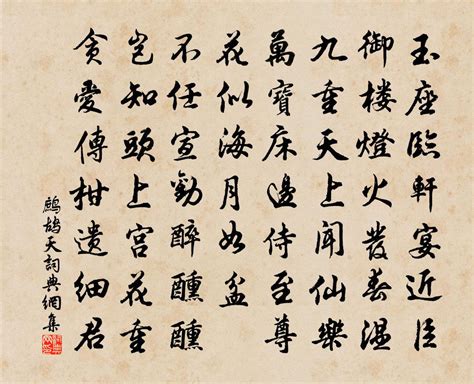 玉座臨軒宴近臣
御楼燈火發春温
九重天上聞仙樂
萬寶床邊侍至尊
花似海月如盆
不任宣勸醉醺醺
豈知頭上宮花重
貪愛傳柑遺細君
鷓鴣天詞典網集